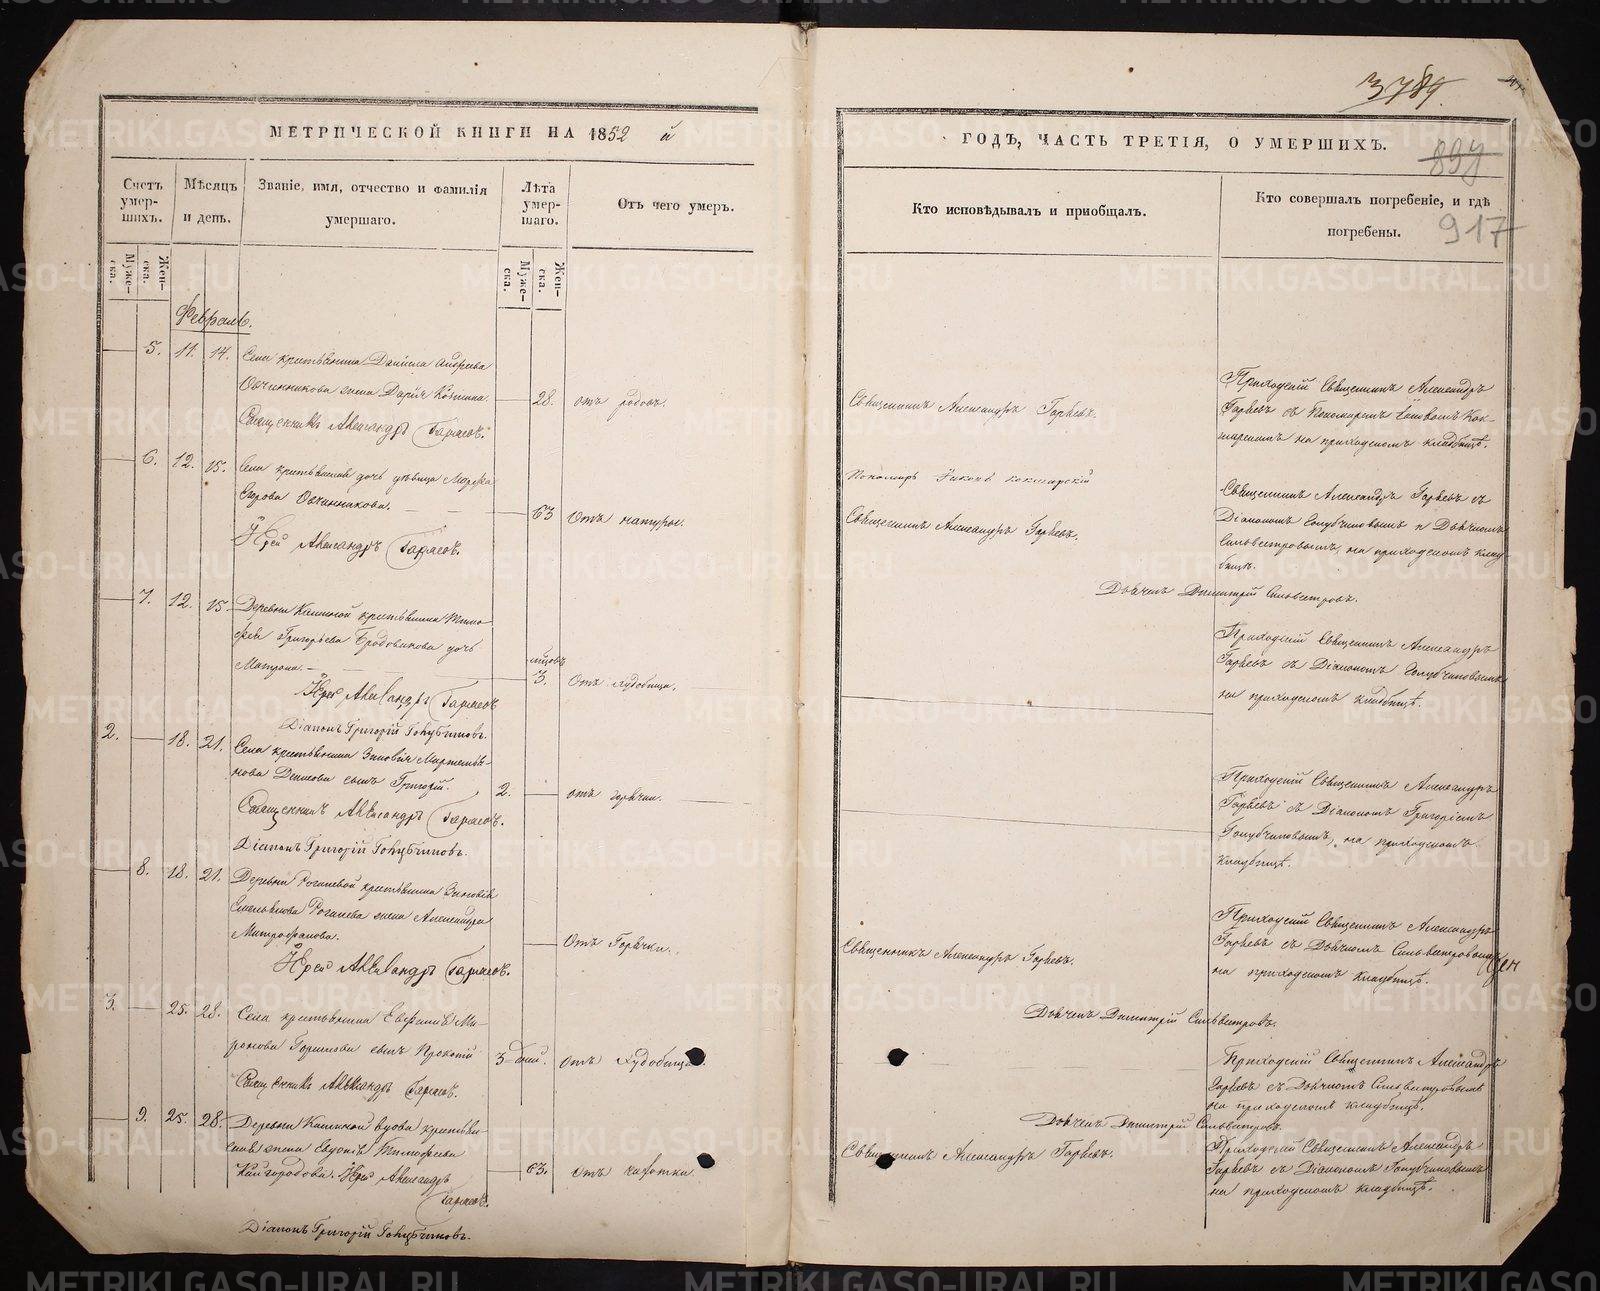 3789
МЕТРИЧЕСКОЙ КНИГИ НА 1852 й
ГОДЪ, ЧАСТЬ ТРЕТІЯ, О УМЕРШИХЪ.
899
917
Счетъ умер-шихъ.
Мѣсяцъ и день.
Званіе, имя, отчество и фамилія умершаго.
Лѣта умер-шаго.
Отъ чего умеръ.
Кто исповѣдывалъ и пріобщалъ.
Кто совершалъ погребеніе, и гдѣ погребены.
Муже-ска.
Жен-ска.
Муже-ска.
Жен-ска.
Февраль.
5. 11. 14. Села крестьянина Даніила Андреева
Овчинникова жена Дарія Козмина. 28. отъ родовъ.
Священникъ Александръ Гаряевъ.
Приходскій Священникъ Александръ
Гаряевъ съ Пономаремъ
на приходскомъ кладбищѣ.
6. 12. 15. Села крестьянская дочь дѣвица Марфа
Егорова Овчинникова. 63 Отъ натуры.
Іерей Александръ Гаряевъ.
Пономарь
Священникъ Александръ Гаряевъ.
Священникъ Александръ Гаряевъ съ
Діакономъ Голубчиковымъ и Дьячкомъ
Сильвестровымъ, на приходскомъ клад-
бищѣ.
Дьячекъ Димитрій Сильвестровъ.
7. 12. 15. Деревни Калиной крестьянина Тимо-
фея Григорьева Бродовикова дочь
Матрона. 3. мѣсяцовъ Отъ худобища.
Іерей Александръ Гаряевъ
Діаконъ Григорій Голубчиковъ.
Приходскій Священникъ Александръ
Гаряевъ съ Діакономъ Голубчиковымъ
на приходскомъ кладбищѣ.
2. 18. 21. Села крестьянина Зиновія Мартемья-
нова сынъ Григорій. 2. отъ горячки.
Священникъ Александръ Гаряевъ.
Діаконъ Григорій Голубчиковъ.
Приходскій Священникъ Александръ
Гаряевъ съ Діакономъ Григоріемъ
Голубчиковымъ, на приходскомъ
кладбищѣ.
8. 18. 21. Деревни Рогалевой крестьянина Зиновія
Емельянова Рогалева жена Александра
Митрофанова. Отъ Горячки.
Іерей Александръ Гаряевъ.
Священникъ Александръ Гаряевъ.
Приходскій Священникъ Александръ
Гаряевъ съ Дьячкомъ Сильвестровымъ
на приходскомъ кладбищѣ.
Дьячекъ Димитрій Сильвестровъ.
3. 25. 28. Села крестьянина Евфимія Ми-
ронова сынъ Прокопій 3 дней. отъ худобища.
Священникъ Александръ Гаряевъ.
Приходскій Священникъ Александръ
Гаряевъ съ Дьячкомъ Сильвестровымъ
на приходскомъ кладбищѣ.
Дьячекъ Димитрій Сильвестровъ.
9. 25. 28. Деревни Калиной вдова крестьян-
ская жена Евдокія Тимофеева
Кайгородова. 63. отъ чахотки.
Іерей Александръ
Гаряевъ.
Священникъ Александръ Гаряевъ.
Приходскій Священникъ Александръ
Гаряевъ съ Діакономъ Голубчиковымъ
на приходскомъ кладбищѣ.
Діаконъ Григорій Голубчиковъ.
METRIKI.GASO-URAL.RU